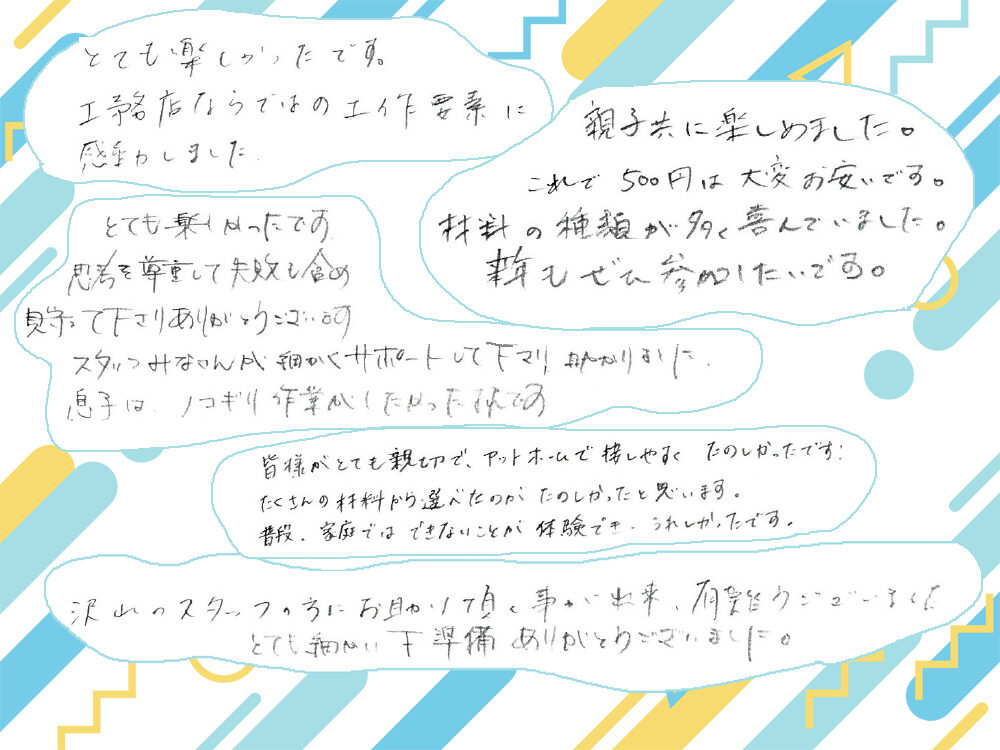 とても楽しかったです。
工務店ならではの工作要素に
感動しました.
親子共に楽しめました。
これで500円は大変お安いです。
材料の種類が多く喜んでいました。
来年もぜひ参加したいです。
とても楽しかったです
思考を尊重して失敗も含め
見守って下さりありがとうございます
スタッフみなさんが細かくサポートして下さり助かりました.
息子は、ノコギリ作業がしたかった
皆様がとても親切で、アットホームで接しやすく たのしかったです!
たくさんの材料から選べたのが たのしかったと思います。
普段、家庭では できないことが 体験でき、うれしかったです。
沢山のスタッフの方にお助け頂く事が出来、有難うございました
とても細かい下準備ありがとうございました。